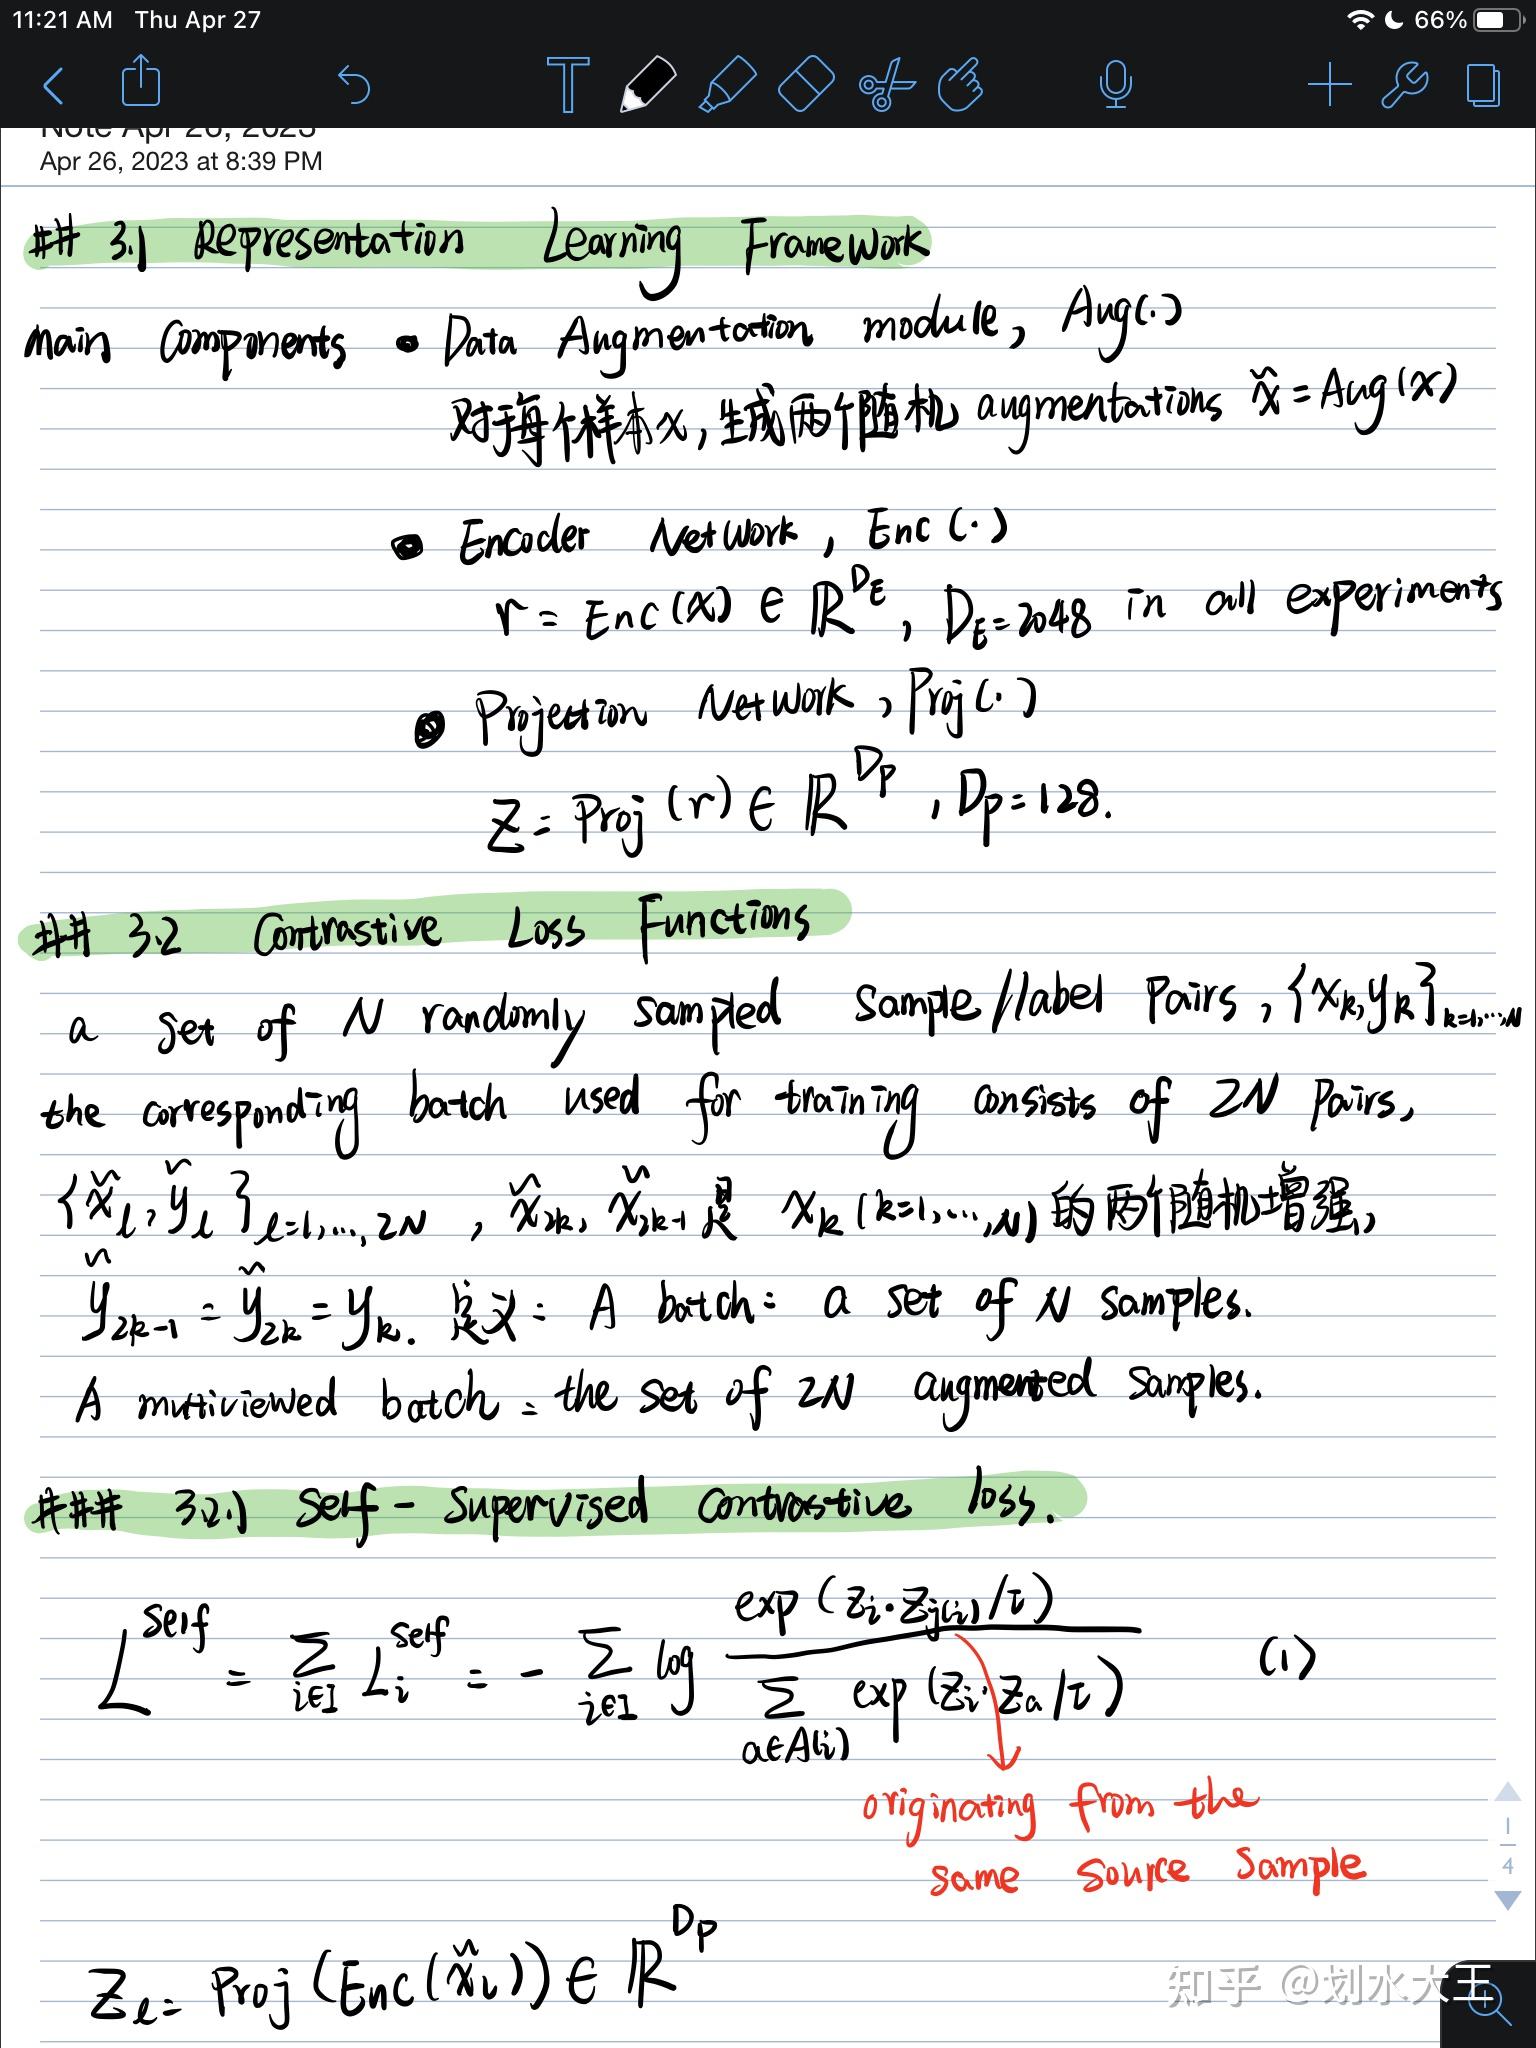 11:21 AM Thu Apr 27 66%
Note Apr 26, 2023
Apr 26, 2023 at 8:39 PM
## 3.1 Representation Learning Framework
main components • Data Augmentation module, Aug(·)
对于每个样本x, 生成两个随机 augmentations x̃ = Aug(x)
• Encoder Network, Enc(·)
r = Enc(x) ∈ ℝ^{D_E}, D_E = 2048 in all experiments
• Projection Network, Proj(·)
z = Proj(r) ∈ ℝ^{D_P}, D_P = 128.
## 3.2 Contrastive Loss Functions
a set of N randomly sampled sample/label pairs, {x_k, y_k}_{k=1,...,N}
the corresponding batch used for training consists of 2N pairs,
{x̃_ℓ, ỹ_ℓ}_{ℓ=1,...,2N}, x̃_{2k}, x̃_{2k-1} 是 x_k (k=1,...,N) 的两个随机增强,
ỹ_{2k-1} = ỹ_{2k} = y_k. 定义: A batch: a set of N samples.
A multiviewed batch: the set of 2N augmented samples.
### 3.2.1 Self-Supervised contrastive loss.
L^{self} = ∑_{i∈I} L_i^{self} = - ∑_{i∈I} log exp(z_i·z_{j(i)}/τ) / ∑_{a∈A(i)} exp(z_i·z_a/τ) (1)
originating from the
same source sample
z_ℓ = Proj(Enc(x̃_ℓ)) ∈ ℝ^{D_P}
1
4
知乎 @划水大王